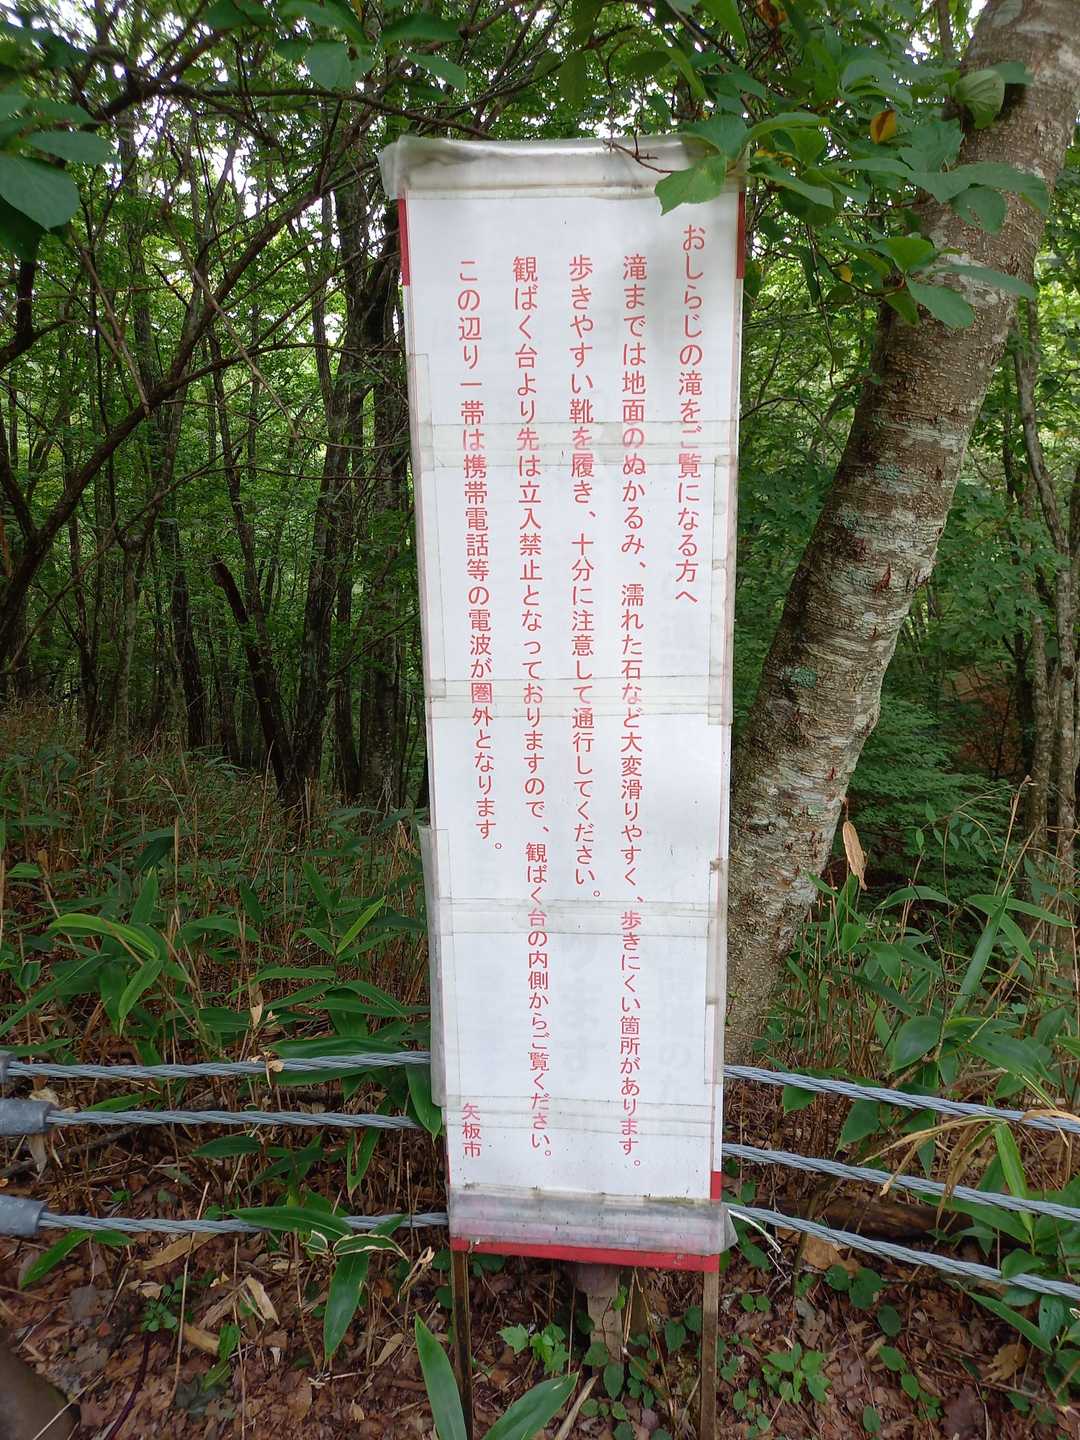 おしらじの滝をご覧になる方へ
滝までは地面のぬかるみ、濡れた石など大変滑りやすく、歩きにくい箇所があります。
歩きやすい靴を履き、十分に注意して通行してください。
観ばく台より先は立入禁止となっておりますので、観ばく台の内側からご覧ください。
この辺り一帯は携帯電話等の電波が圏外となります。
矢板市